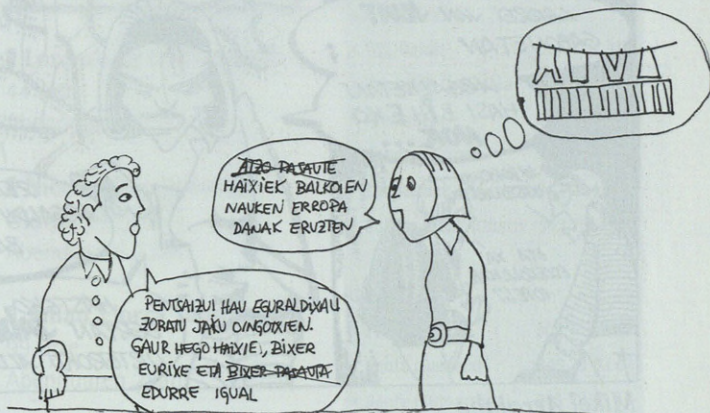 ATZO PASAUTE
HAIXIEK BALKOIEN
NAUKEN ERROPA
DANAK ERUZTEN
PENTSAIZUI HAU EGURALDIXAU
ZORATU JAKU OINGOTXIEN.
GAUR HEGO HAIXIE, BIXER
EURIXE ETA BIXER PASAUTA
EDURRE IGUAL